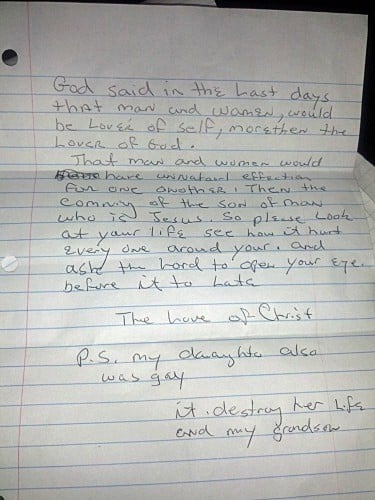 God said in the Last days
that man and women, would
be Lover of self, more then the
Lover of God.
That man and women would
have unnaturl effection
for one another. Then the
comming of the son of man
who is Jesus. So please Look
at your life see how it hurt
every one aroud your. and
ask the Lord to open your eye.
before it to Late
The Love of Christ
P.S. my daughte also
was gay
it. destroy her Life
and my grandson